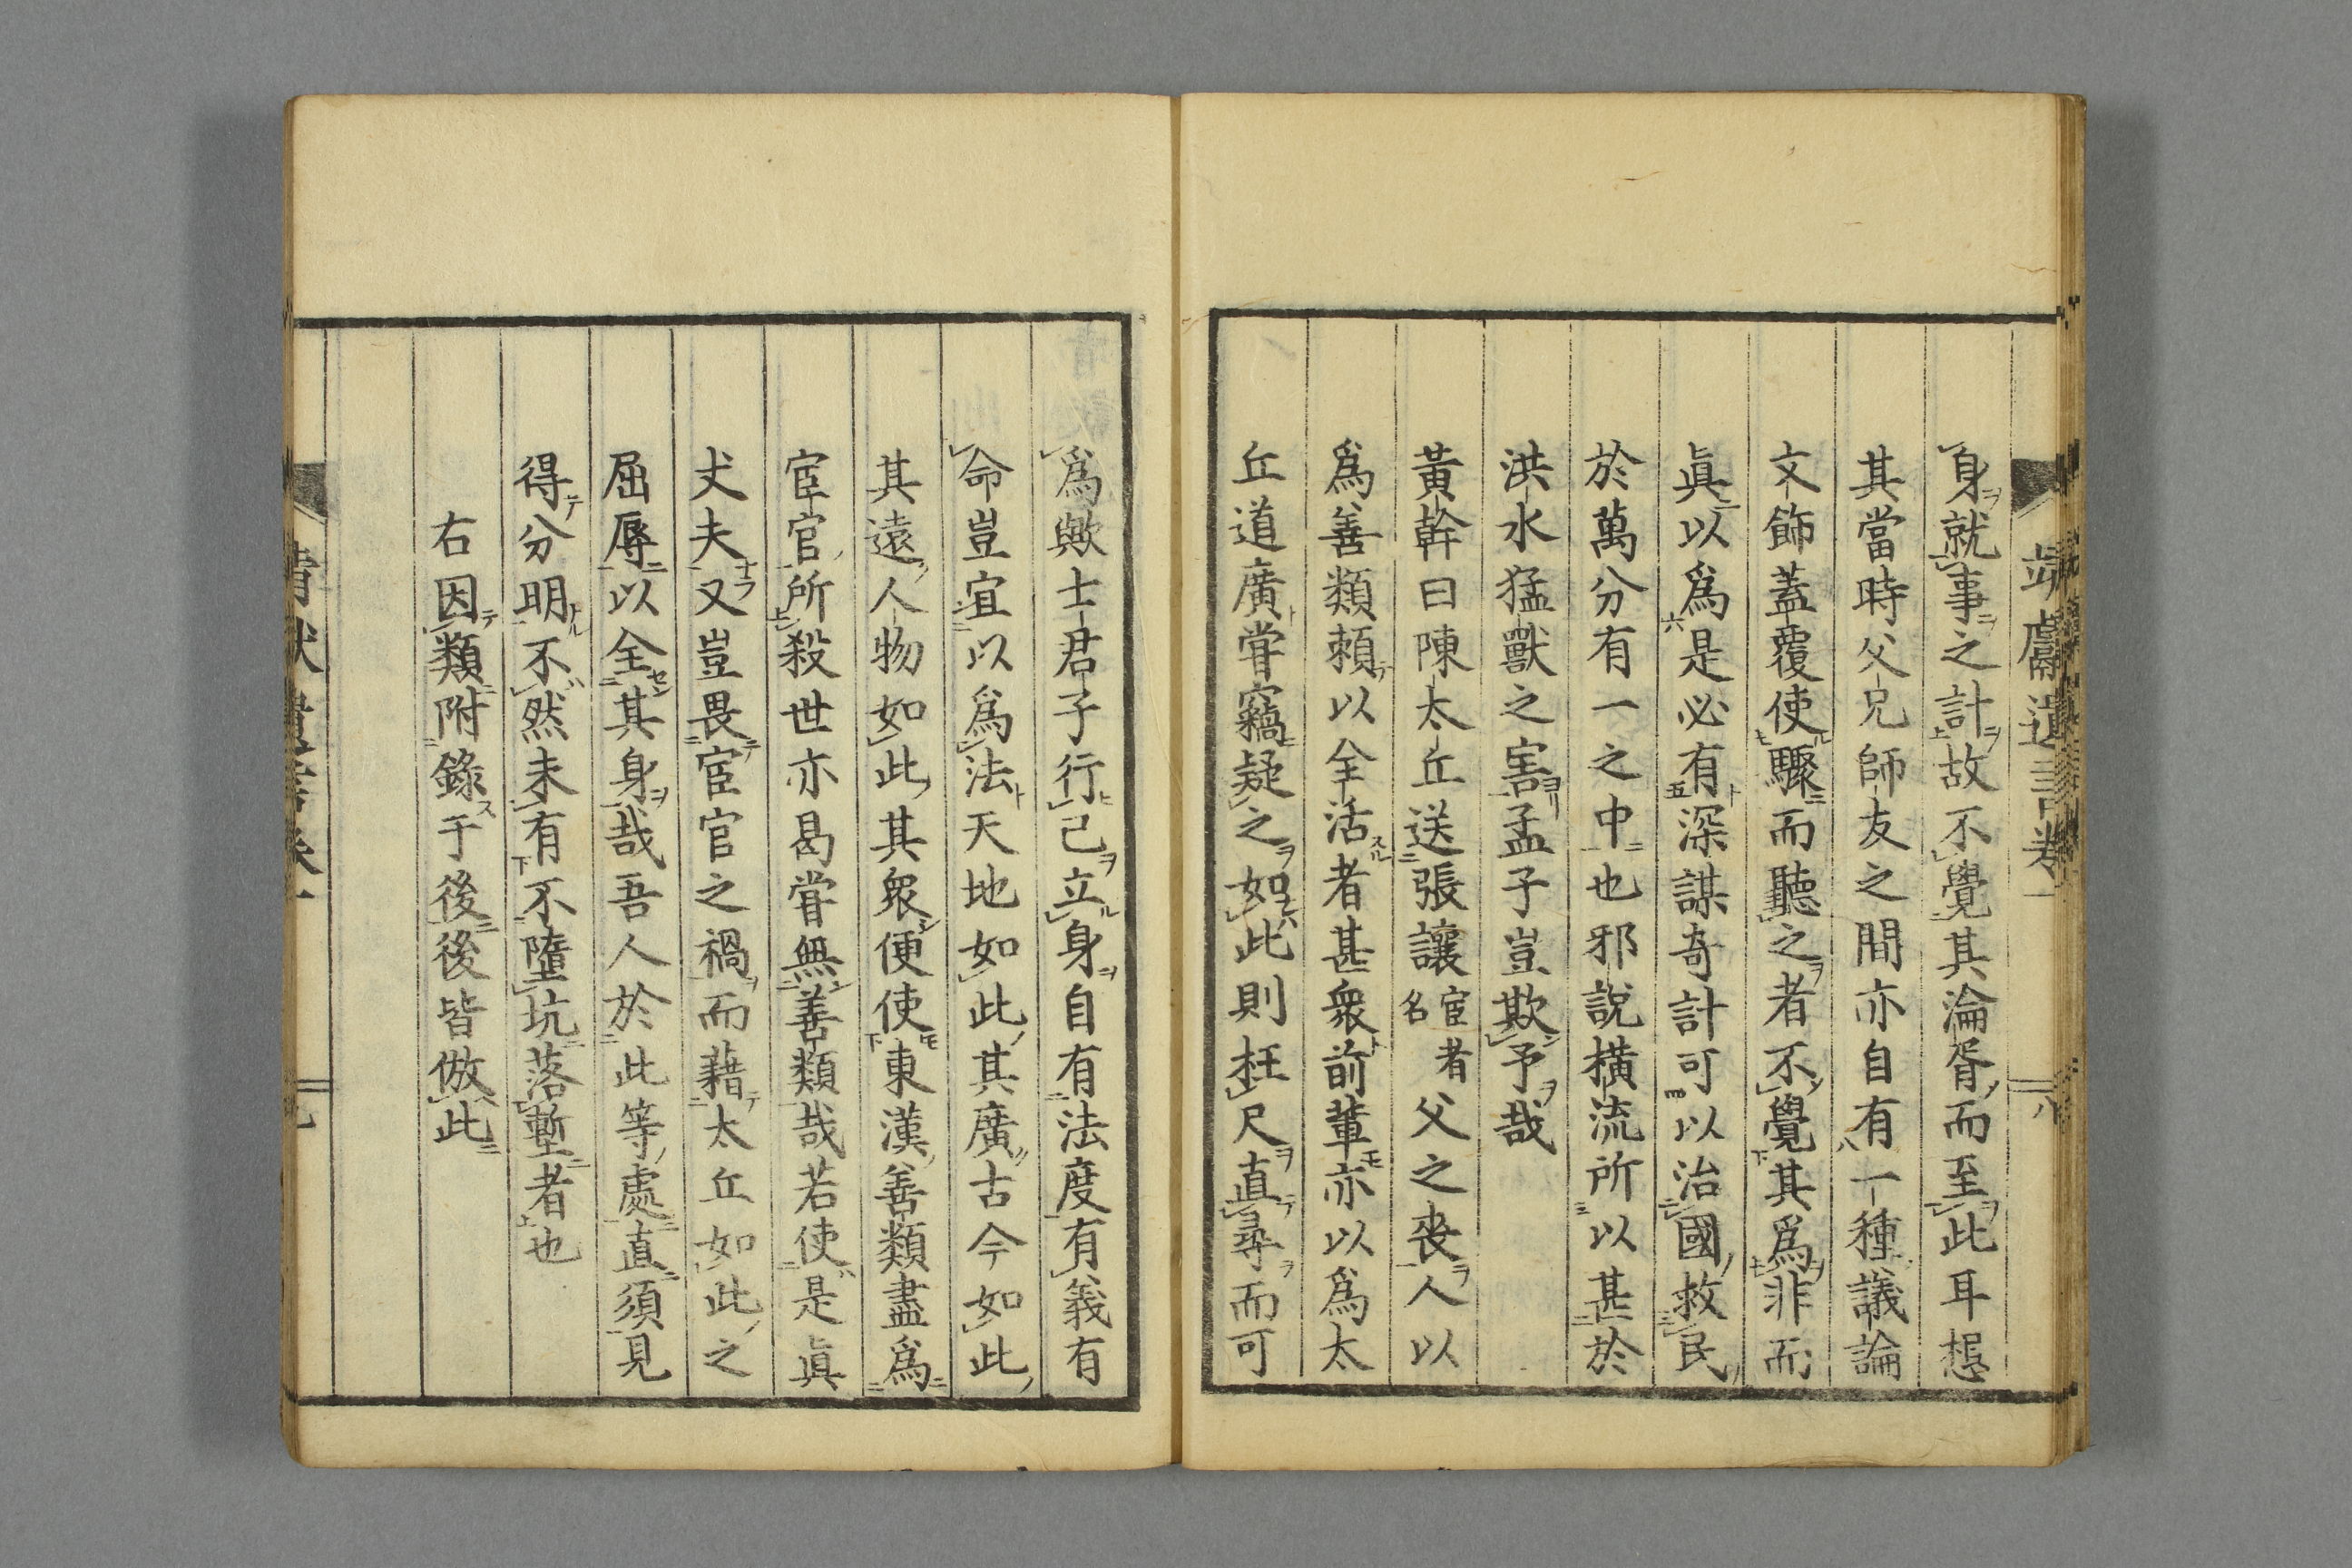 身就事之計故不覺其淪胥而至此耳想
其當時父兄師友之間亦自有一種議論
文飾蓋覆使驟而聽之者不覺其爲非而
眞以爲是必有深謀奇計可以治國救民
於萬分有一之中也邪說橫流所以甚於
洪水猛獸之害孟子豈欺予哉
黃幹曰陳太丘送張讓宦者名父之喪人以
爲善類賴以全活者甚衆前輩亦以爲太
丘道廣嘗竊疑之如此則枉尺直尋而可
爲歟士君子行己立身自有法度有義有
命豈宜以爲法天地如此其廣古今如此
其遠人物如此其衆便使東漢善類盡爲
宦官所殺世亦曷嘗無善類哉若使是眞
丈夫又豈畏宦官之禍而藉太丘如此之
屈辱以全其身哉吾人於此等處直須見
得分明不然未有不墮坑落塹者也
右因類附錄于後後皆倣此